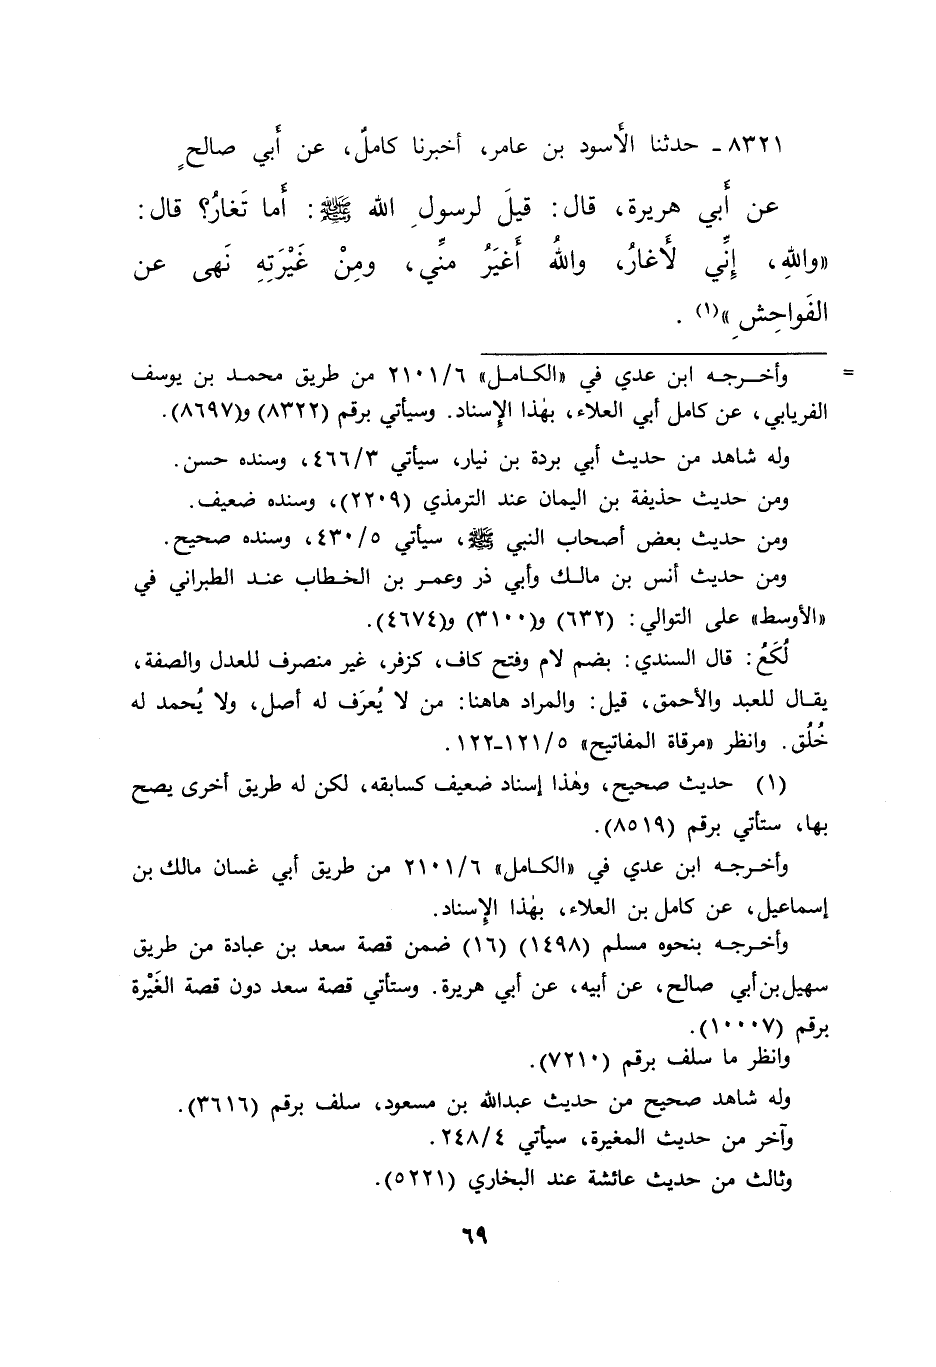 ٨٣٢١ ـ حدثنا الأَسود بن عامر، أخبرنا كاملٌ، عن أَبي صالحٍ
عن أَبي هريرة، قال: قيلَ لرسولِ الله ﷺ: أَما تَغارُ؟ قال:
«واللهِ، إِنِّي لأَغارُ، واللهُ أَغيَرُ منِّي، ومِنْ غَيْرَتِهِ نَهى عن
الفَواحِشِ»(١) .
= وأخـرجـه ابن عدي في «الكـامـل» ٢١٠١/٦ من طريق محمـد بن يوسف
الفريابي، عن كامل أبي العلاء، بهٰذا الإسناد. وسيأتي برقم (٨٣٢٢) و(٨٦٩٧).
وله شاهد من حديث أبي بردة بن نيار، سيأتي ٤٦٦/٣، وسنده حسن.
ومن حديث حذيفة بن اليمان عند الترمذي (٢٢٠٩)، وسنده ضعيف.
ومن حديث بعض أصحاب النبي ﷺ، سيأتي ٤٣٠/٥، وسنده صحيح.
ومن حديث أنس بن مالـك وأبي ذر وعمـر بن الخـطاب عنـد الطبراني في
«الأوسط» على التوالي: (٦٣٢) و(٣١٠٠) و(٤٦٧٤).
لُكَعُ: قال السندي: بضم لام وفتح كاف، كزفر، غير منصرف للعدل والصفة،
يقـال للعبد والأحمق، قيل: والمراد هاهنا: من لا يُعرَف له أصل، ولا يُحمد له
خُلُق. وانظر «مرقاة المفاتيح» ١٢١/٥-١٢٢.
(١) حديث صحيح، وهٰذا إسناد ضعيف كسابقه، لكن له طريق أخرى يصح
بها، ستأتي برقم (٨٥١٩).
وأخـرجـه ابن عدي في «الكـامل» ٢١٠١/٦ من طريق أبي غسان مالك بن
إسماعيل، عن كامل بن العلاء، بهٰذا الإسناد.
وأخـرجـه بنحوه مسلم (١٤٩٨) (١٦) ضمن قصة سعد بن عبادة من طريق
سهيل بن أبي صالح، عن أبيه، عن أبي هريرة. وستأتي قصة سعد دون قصة الغَيْرة
برقم (١٠٠٠٧).
وانظر ما سلف برقم (٧٢١٠).
وله شاهد صحيح من حديث عبدالله بن مسعود، سلف برقم (٣٦١٦).
وآخر من حديث المغيرة، سيأتي ٢٤٨/٤.
وثالث من حديث عائشة عند البخاري (٥٢٢١).
٦٩